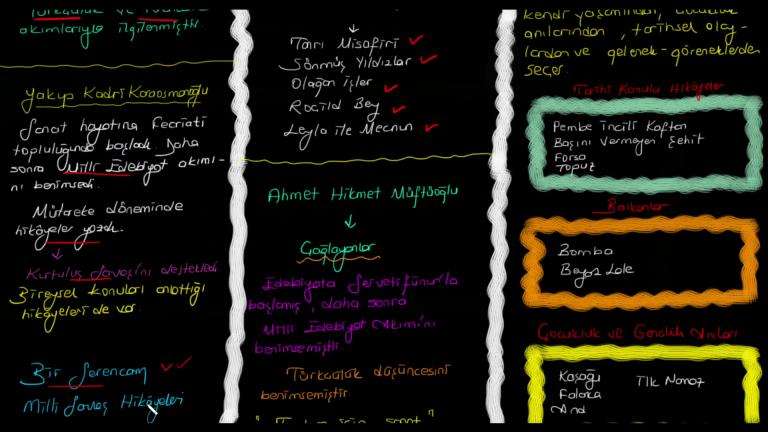 Türkçülük ve
akımlarıyla ilgilenmiştir.
Yakup Kadri Karaosmanoğlu
Sanat hayatına Fecriati
topluluğunda başladı. Daha
sonra Milli Edebiyat akımı-
nı benimsedi.
Mütareke döneminde
hikâyeler yazdı.
Kurtuluş Savaşını destekledi.
Bireysel konuları anlattığı
hikâyeleri de var.
Bir Serencam
Milli Savaş Hikâyeleri
Tanrı Misafiri
Sönmüş Yıldızlar
Olağan İşler
Roçild Bey
Leyla ile Mecnun
Ahmet Hikmet Müftüoğlu
Çağlayanlar
Edebiyata Servetifünun'la
başlamış, daha sonra
Milli Edebiyat Akımını
benimsemiştir.
Türkçülük düşüncesini
benimsemiştir
kendi yaşamından, çocukluk
anılarından, tarihsel olay-
lardan ve gelenek-göreneklerden
seçer.
Tarihi Konulu Hikâyeler
Pembe İncili Kaftan
Başını Vermeyen Şehit
Forsa
Topuz
Balkanlar
Bomba
Beyaz Lale
Çocukluk ve Gençlik Anıları
Kaşağı
İlk Namaz
Falaka
And